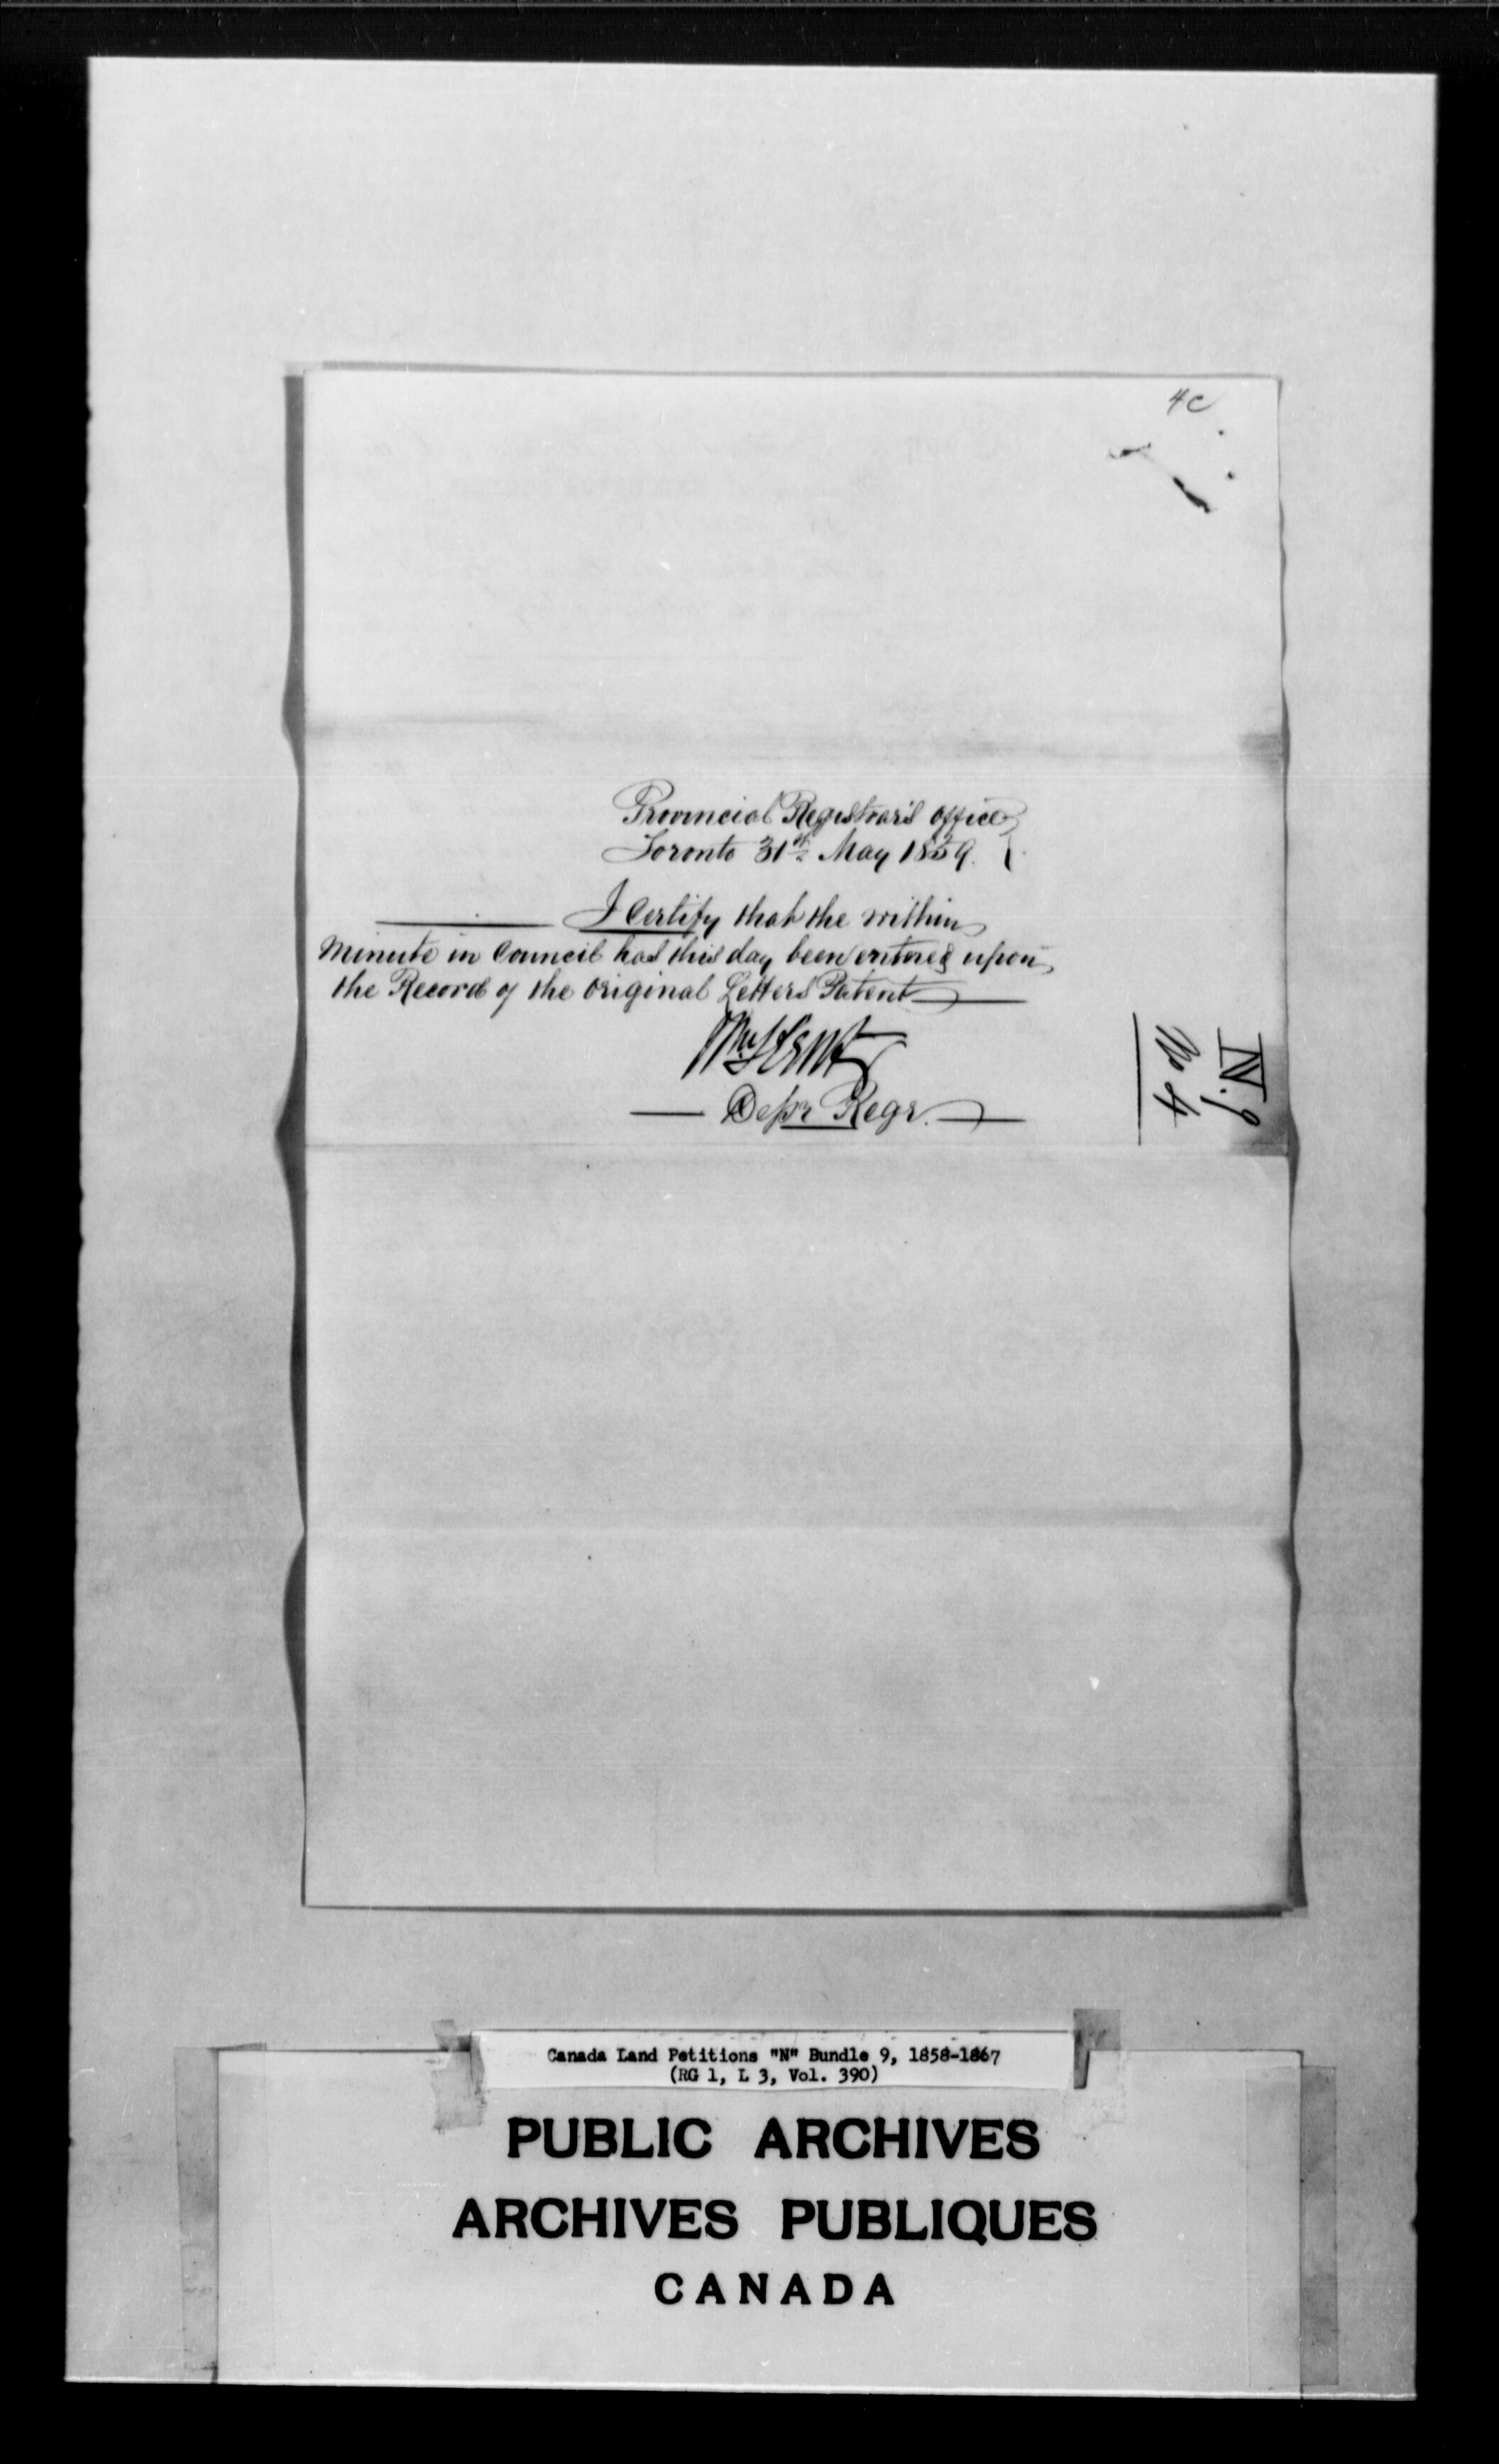 4c
Provincial Registrar's Office
Toronto 31st May 1859.
I Certify that the within
Minute in Council has this day been entered upon
the Record of the original Letters Patent
Wm Kent
Depr Regr.
N. 9
No 4
Canada Land Petitions "N" Bundle 9, 1858-1867
(RG 1, L 3, Vol. 390)
PUBLIC ARCHIVES
ARCHIVES PUBLIQUES
CANADA